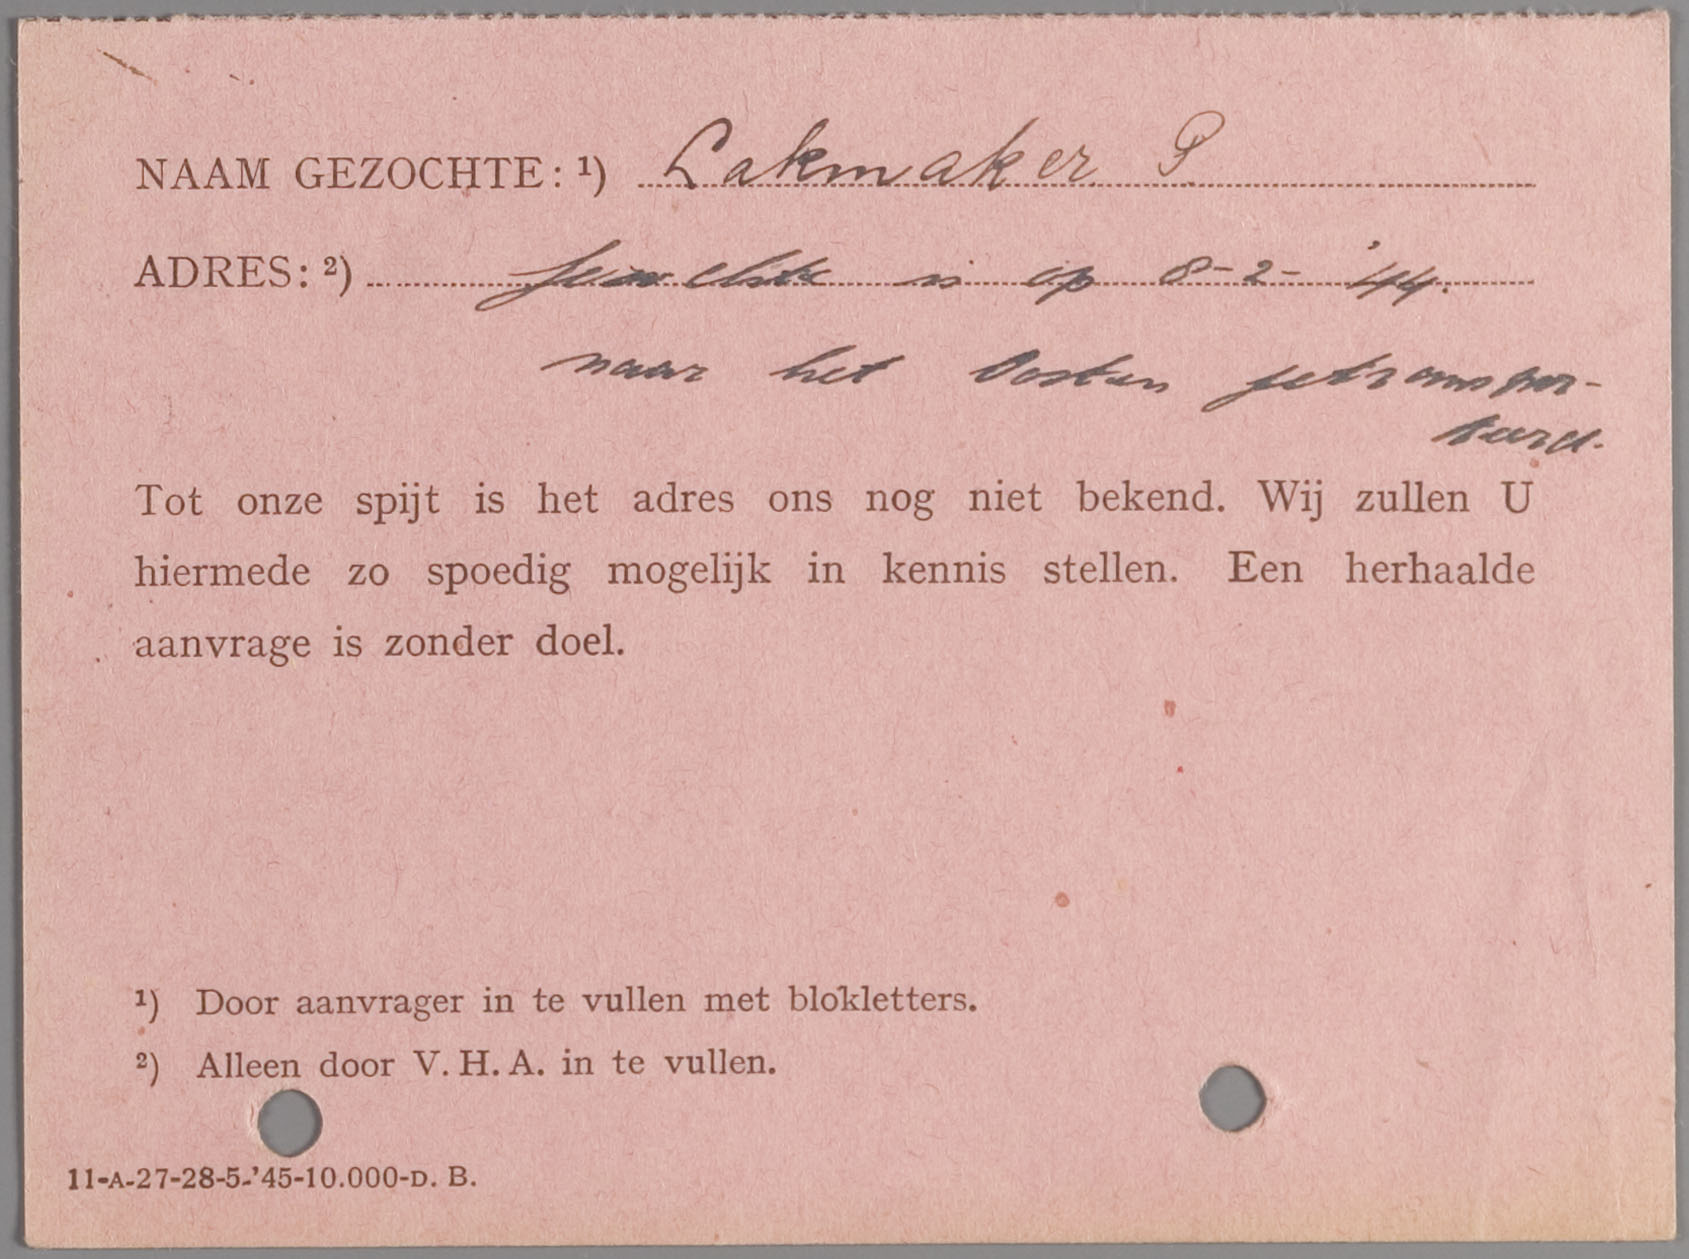 NAAM GEZOCHTE: ¹) Lakmaker P
ADRES: ²) Gezochte is op 8-2-'44.
naar het Oosten getranspor-
teerd.
Tot onze spijt is het adres ons nog niet bekend. Wij zullen U
hiermede zo spoedig mogelijk in kennis stellen. Een herhaalde
aanvrage is zonder doel.
¹) Door aanvrager in te vullen met blokletters.
²) Alleen door V. H. A. in te vullen.
11-A-27-28-5-'45-10.000-D. B.